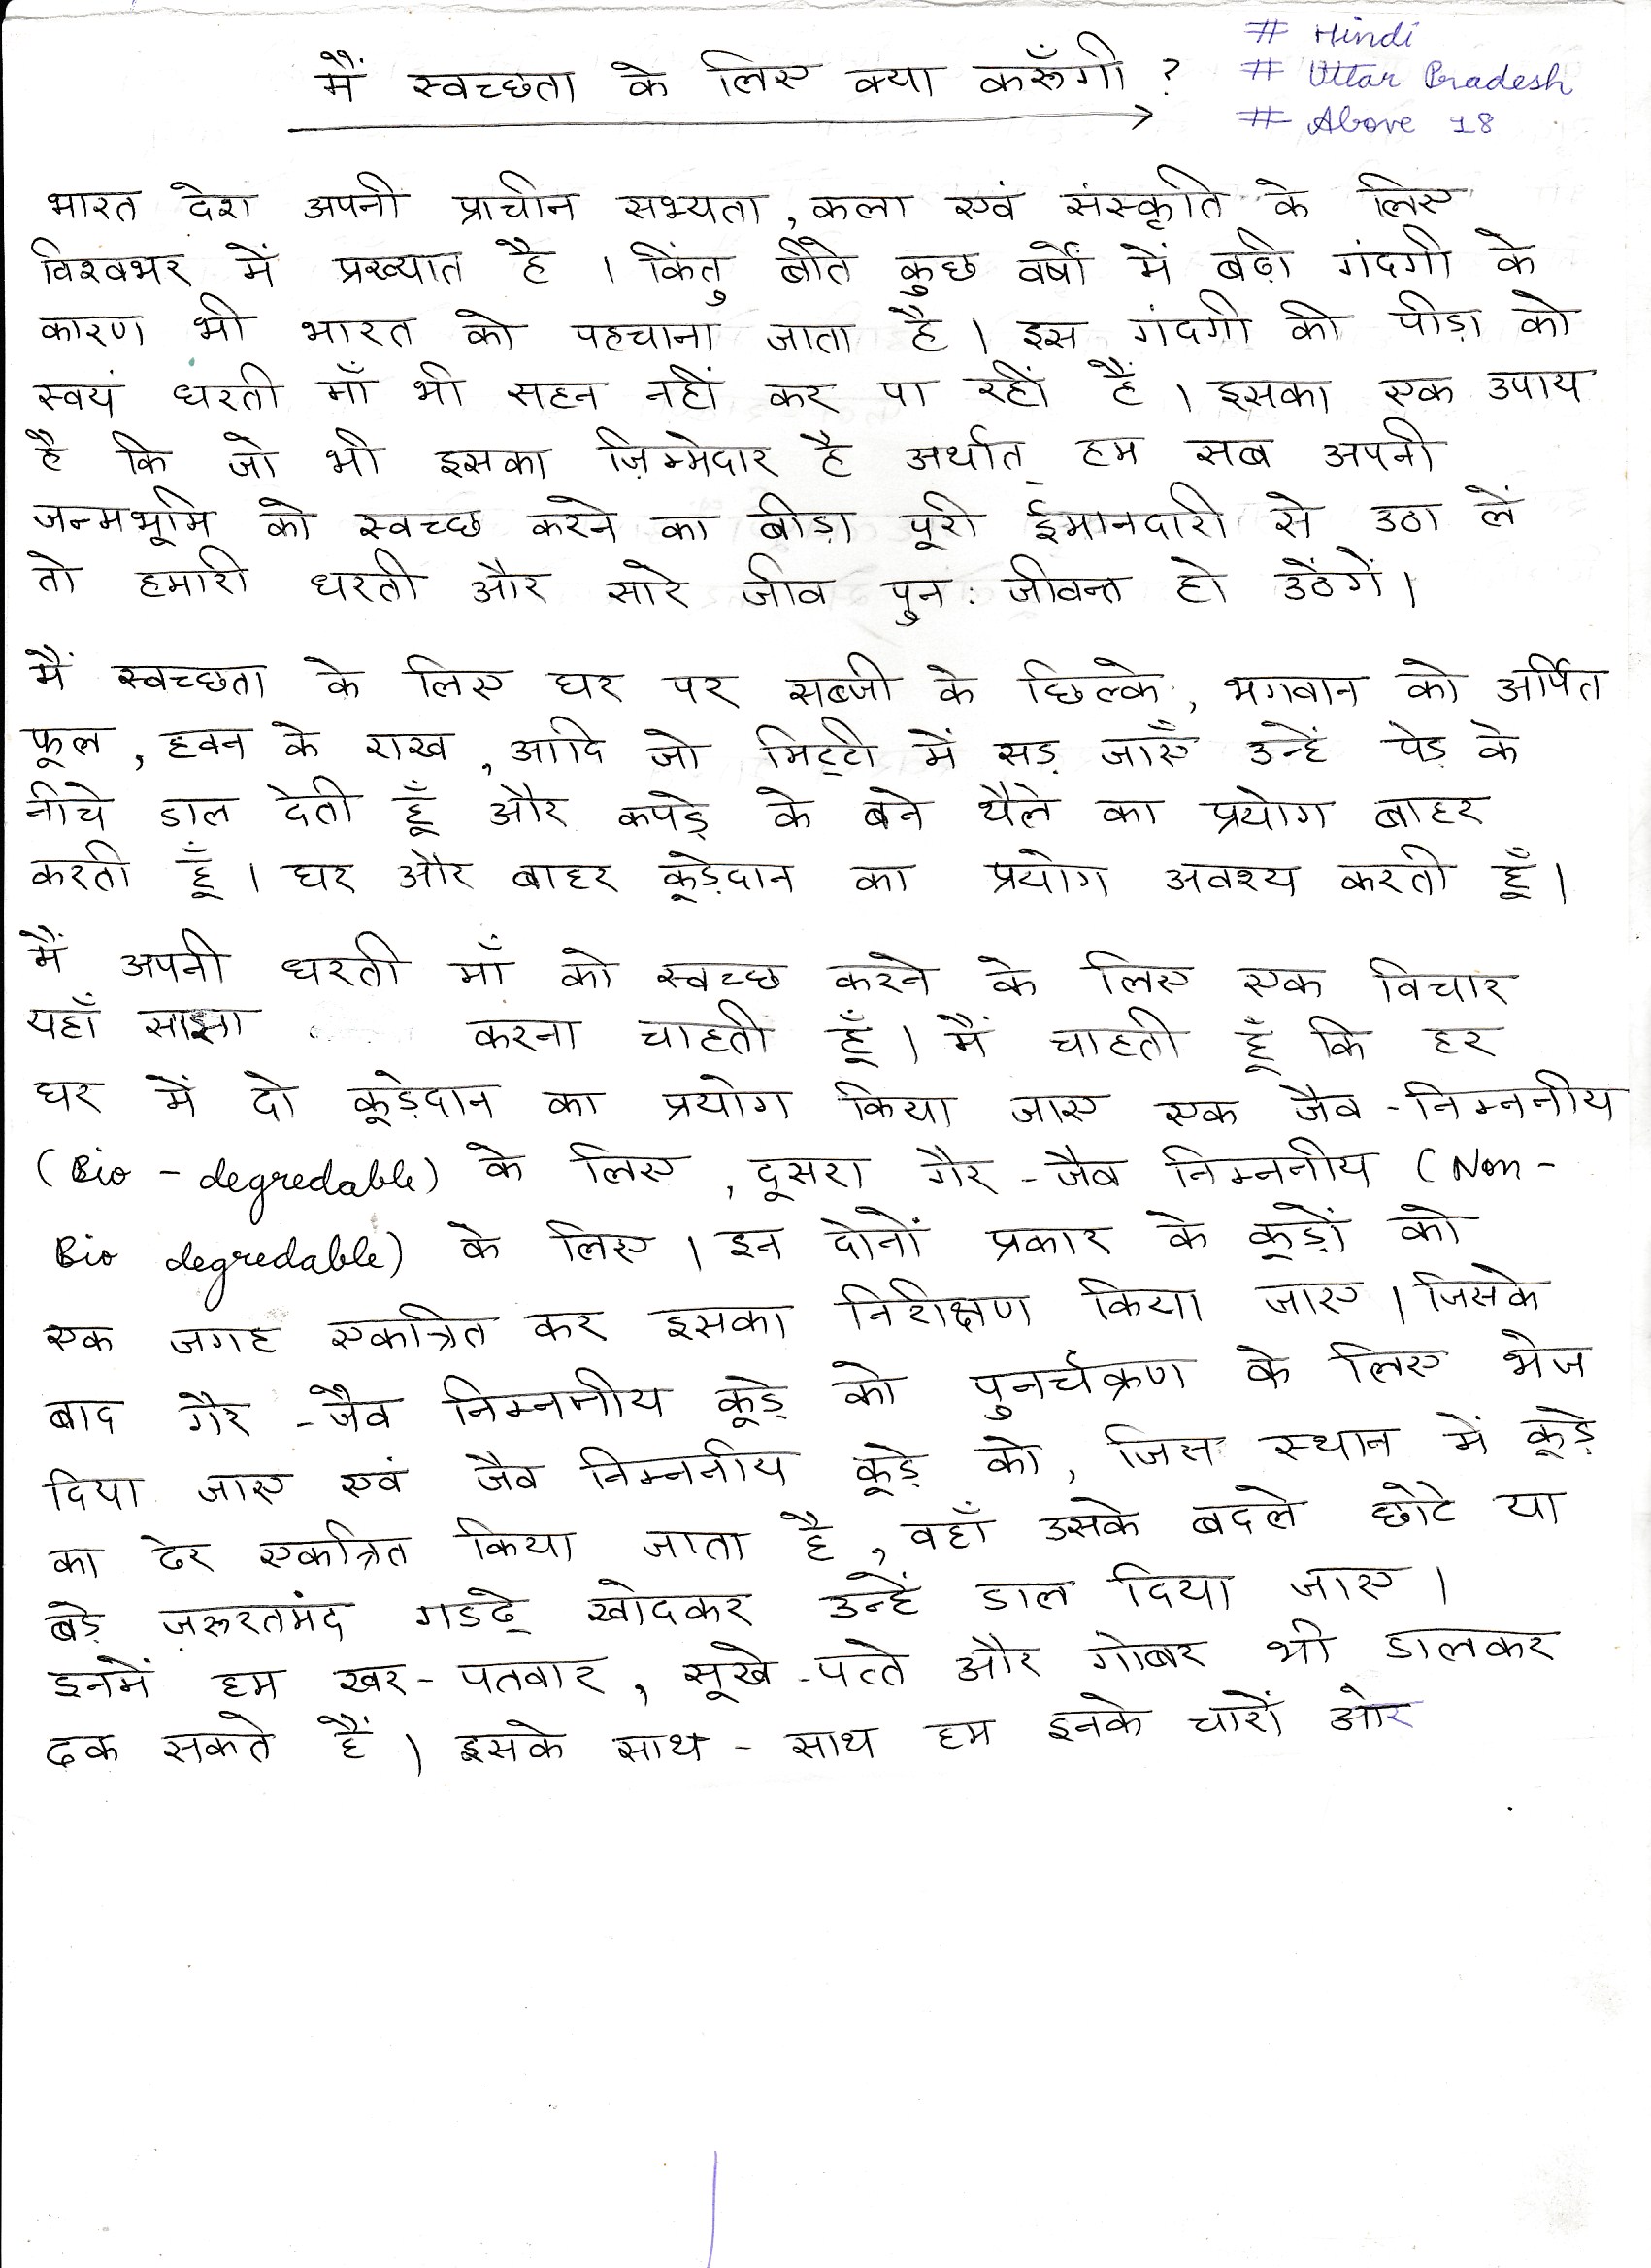 मैं स्वच्छता के लिए क्या करूँगी ?
# Hindi
# Uttar Pradesh
# Above 18
भारत देश अपनी प्राचीन सभ्यता, कला एवं संस्कृति के लिए
विश्वभर में प्रख्यात है । किंतु बीते कुछ वर्षों में बढ़ी गंदगी के
कारण भी भारत को पहचाना जाता है । इस गंदगी की पीड़ा को
स्वयं धरती माँ भी सहन नहीं कर पा रहीं हैं । इसका एक उपाय
है कि जो भी इसका ज़िम्मेदार है अर्थात् हम सब अपनी
जन्मभूमि को स्वच्छ करने का बीड़ा पूरी ईमानदारी से उठा लें
तो हमारी धरती और सारे जीव पुन: जीवन्त हो उठेंगें ।
मैं स्वच्छता के लिए घर पर सब्जी के छिल्के, भगवान को अर्पित
फूल, हवन के राख, आदि जो मिट्टी में सड़ जाएँ उन्हें पेड़ के
नीचे डाल देती हूँ और कपड़े के बने थैले का प्रयोग बाहर
करती हूँ । घर और बाहर कूड़ेदान का प्रयोग अवश्य करती हूँ ।
मैं अपनी धरती माँ को स्वच्छ करने के लिए एक विचार
यहाँ साझा करना चाहती हूँ । मैं चाहती हूँ कि हर
घर में दो कूड़ेदान का प्रयोग किया जाए एक जैव - निम्ननीय
(Bio - degredable) के लिए, दूसरा गैर - जैव निम्ननीय (Non -
Bio degredable) के लिए । इन दोनों प्रकार के कूड़ों को
एक जगह एकत्रित कर इसका निरीक्षण किया जाए । जिसके
बाद गैर - जैव निम्ननीय कूड़े को पुनर्चक्रण के लिए भेज
दिया जाए एवं जैव निम्ननीय कूड़े को, जिस स्थान में कूड़े
का ढेर एकत्रित किया जाता है, वहाँ उसके बदले छोटे या
बड़े ज़रूरतमंद गडढ़े खोदकर उन्हें डाल दिया जाए ।
इनमें हम खर - पतवार, सूखे - पत्ते और गोबर भी डालकर
ढक सकते हैं । इसके साथ - साथ हम इनके चारों ओर